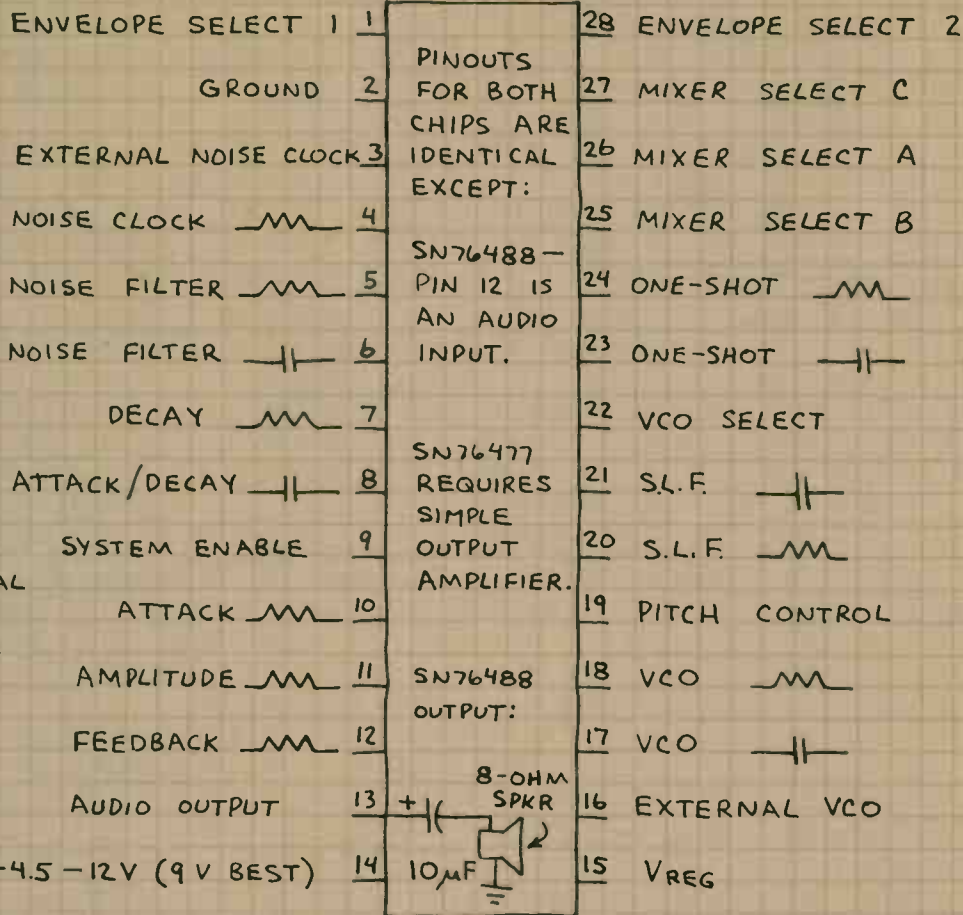 ENVELOPE SELECT 1 1
GROUND 2
EXTERNAL NOISE CLOCK 3
NOISE CLOCK 4
NOISE FILTER 5
NOISE FILTER 6
DECAY 7
ATTACK/DECAY 8
SYSTEM ENABLE 9
AL
ATTACK 10
AMPLITUDE 11
FEEDBACK 12
AUDIO OUTPUT 13
4.5-12V (9 V BEST) 14
PINOUTS
FOR BOTH
CHIPS ARE
IDENTICAL
EXCEPT:
SN76488-
PIN 12 IS
AN AUDIO
INPUT.
SN76477
REQUIRES
SIMPLE
OUTPUT
AMPLIFIER.
SN76488
OUTPUT:
8-OHM
SPKR
+
10µF
28 ENVELOPE SELECT 2
27 MIXER SELECT C
26 MIXER SELECT A
25 MIXER SELECT B
24 ONE-SHOT
23 ONE-SHOT
22 VCO SELECT
21 S.L.F.
20 S.L.F.
19 PITCH CONTROL
18 VCO
17 VCO
16 EXTERNAL VCO
15 VREG